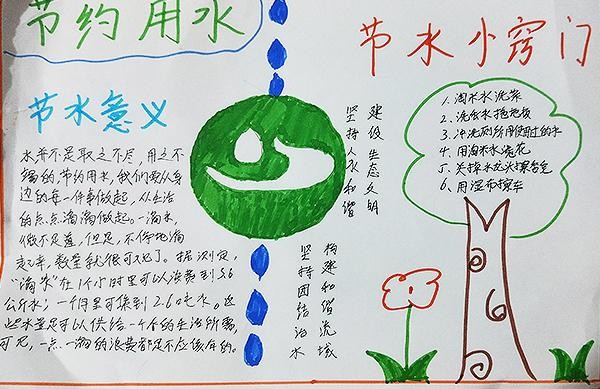 节约用水
节水意义
水并不是取之不尽,用之不
竭的节约用水,我们要从身
边的每一件事做起,从生活
的点点滴滴做起。一滴水,
微不足道,但是,不停地滴
起来,数量就很可观了。据测定,
"滴水"在1个小时里可以浪费到3.6
公斤水;一个月里可集到2.6吨水。这
些水量足可以供给一个人的生活所需,
可见,一点一滴的浪费都是不应该有的。
建设生态文明
坚持人水和谐
构建和谐流域
坚持团结治水
节水小窍门
1. 淘米水洗菜
2. 洗衣水拖地板
3. 冲洗厕所用使用过的水
4. 用淘米水浇花
5. 关掉水龙头擦香皂
6. 用湿布擦车